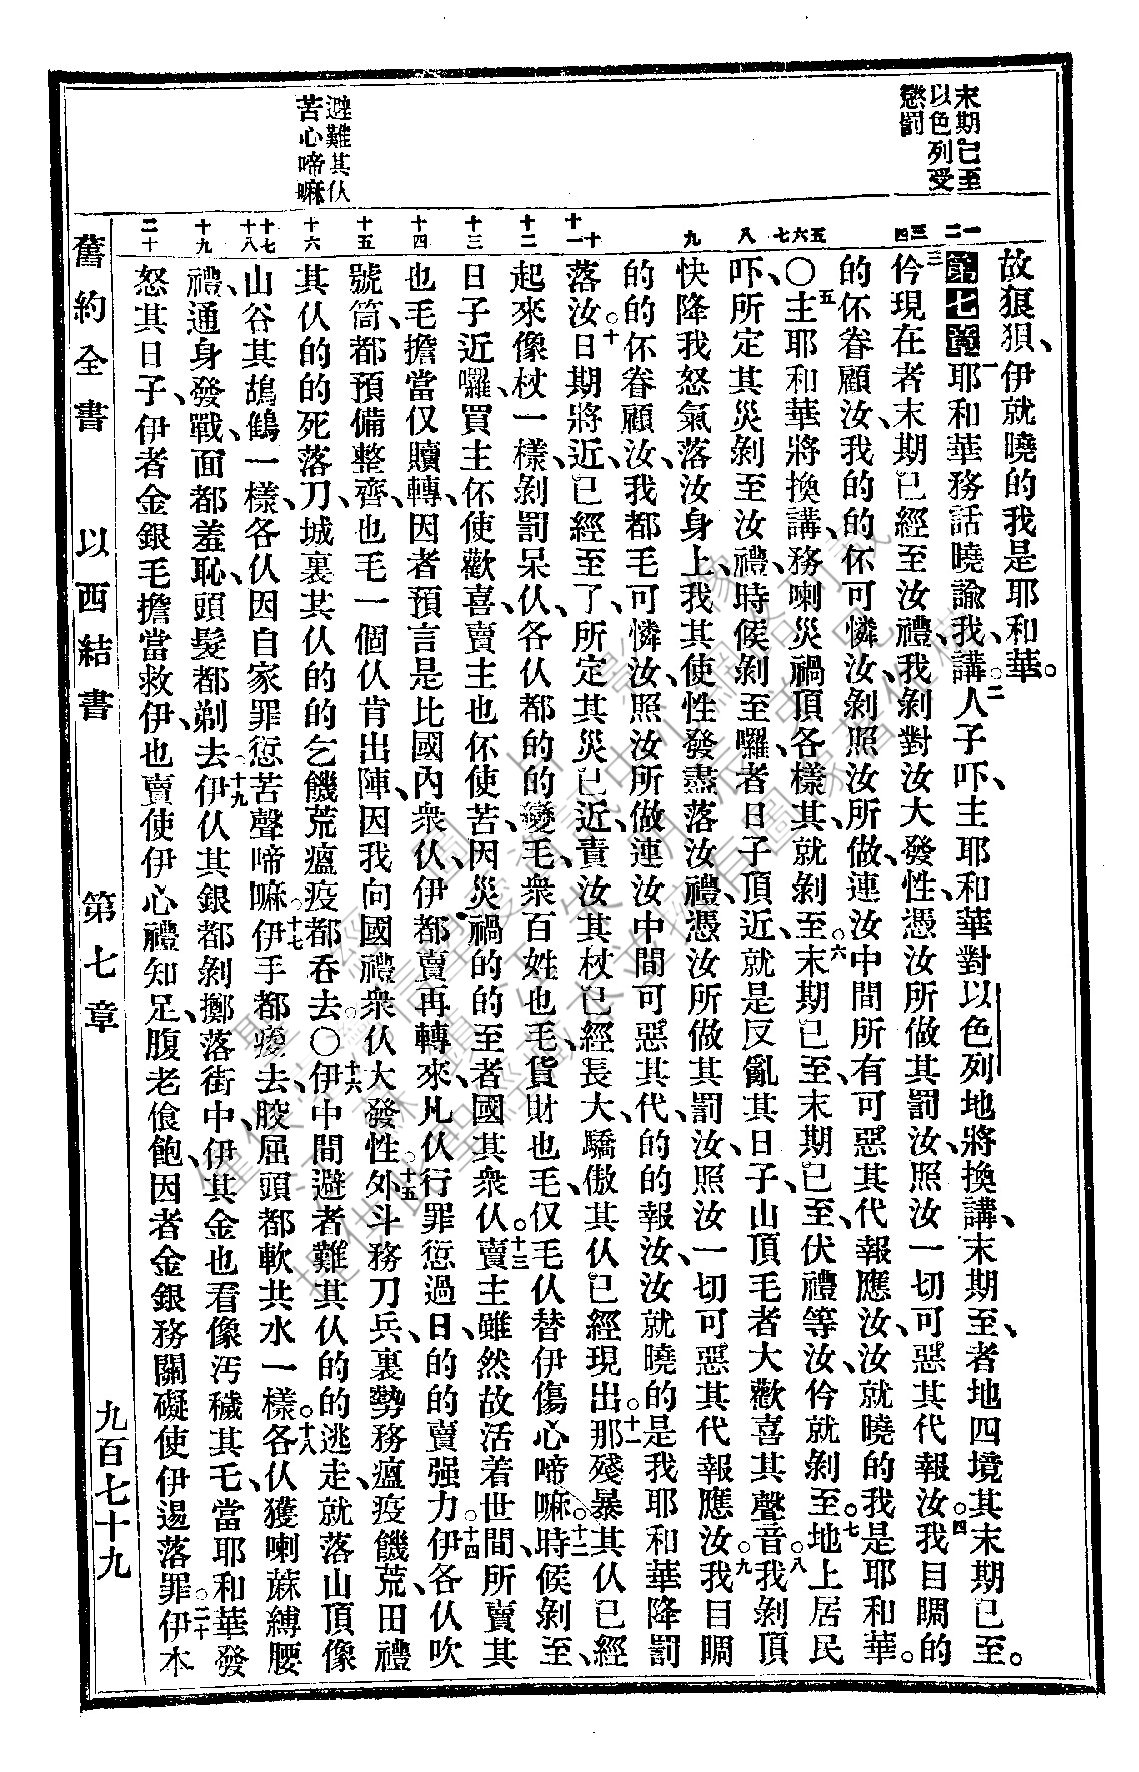 末期已至
以色列受
懲罰
避難其仸
苦心啼嘛
一
二
三
四
五
六
七
八
九
十
十一
十二
十三
十四
十五
十六
十七
十八
十九
二十
故狼狽、伊就曉的我是耶和華。
第七章一耶和華務話曉諭我、講、二人子吓、主耶和華對以色列地將換講、末期至、者地四境其末期已至。
三仱現在者末期已經至汝禮、我剝對汝大發性、憑汝所做其罰汝、照汝一切可惡其代報汝。四我目睭的
的伓眷顧汝、我的的伓可憐汝、剝照汝所做、連汝中間所有可惡其代報應汝、汝就曉的我是耶和華。
〇五主耶和華將換講、務喇災禍頂各樣其、就剝至。六末期已至、末期已至、伏禮等汝、仱就剝至。七地上居民
吓、所定其災剝至汝禮、時候剝至囉、者日子頂近、就是反亂其日子、山頂毛者大歡喜其聲音。八我剝頂
快降我怒氣落汝身上、我其使性發盡落汝禮、憑汝所做其罰汝、照汝一切可惡其代報應汝。九我目睭
的的伓眷顧汝、我都毛可憐汝、照汝所做、連汝中間可惡其代、的的報汝、汝就曉的是我耶和華降罰
落汝。十日期將近、已經至了、所定其災已近、責汝其杖已經長大、驕傲其仸已經現出。十一那殘暴其仸、已經
起來像杖一樣、剝罰呆仸、各仸都的的變毛、衆百姓也毛、貨財也毛、仅毛仸替伊傷心啼嘛。十二時候剝至、
日子近囉、買主伓使歡喜、賣主也伓使苦、因災禍的的至者國其衆仸。十三賣主雖然故活着世間、所賣其
也毛擔當仅贖轉、因者預言是比國內衆仸、伊都賣再轉來、凡仸行罪愆過日、的的賣强力。十四伊各仸吹
號筒、都預備整齊、也毛一個仸肯出陣、因我向國禮衆仸大發性。十五外斗務刀兵、裏勢務瘟疫饑荒、田禮
其仸的的死落刀、城裏其仸的的乞饑荒瘟疫都吞去。〇十六伊中間避者難其仸的的逃走、就落山頂、像
山谷其鴣鶴一樣、各仸因自家罪愆苦聲啼嘛。十七伊手都痠去、骹屈頭都軟共水一樣。十八各仸獲喇蔴縛腰
禮、通身發戰、面都羞恥、頭髮都剃去。十九伊仸其銀都剝擲落街中、伊其金也看像汚穢其乇、當耶和華發
怒其日子、伊者金銀毛擔當救伊、也賣使伊心禮知足、腹老飽、因者金銀務關礙使伊逿落罪。二十伊木
舊約全書　以西結書　第七章　九百七十九